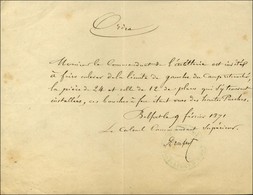 Ordre
Monsieur le Commandant de l'artillerie est invité
à faire enlever de la limite de gauche du Camp retranché,
la pièce de 24 et celle de 12 de place qui s'y trouvent
installées, ces bouches à feu étant vues des hautes Perches.
Belfort le 9 février 1871
Le Colonel Commandant Supérieur